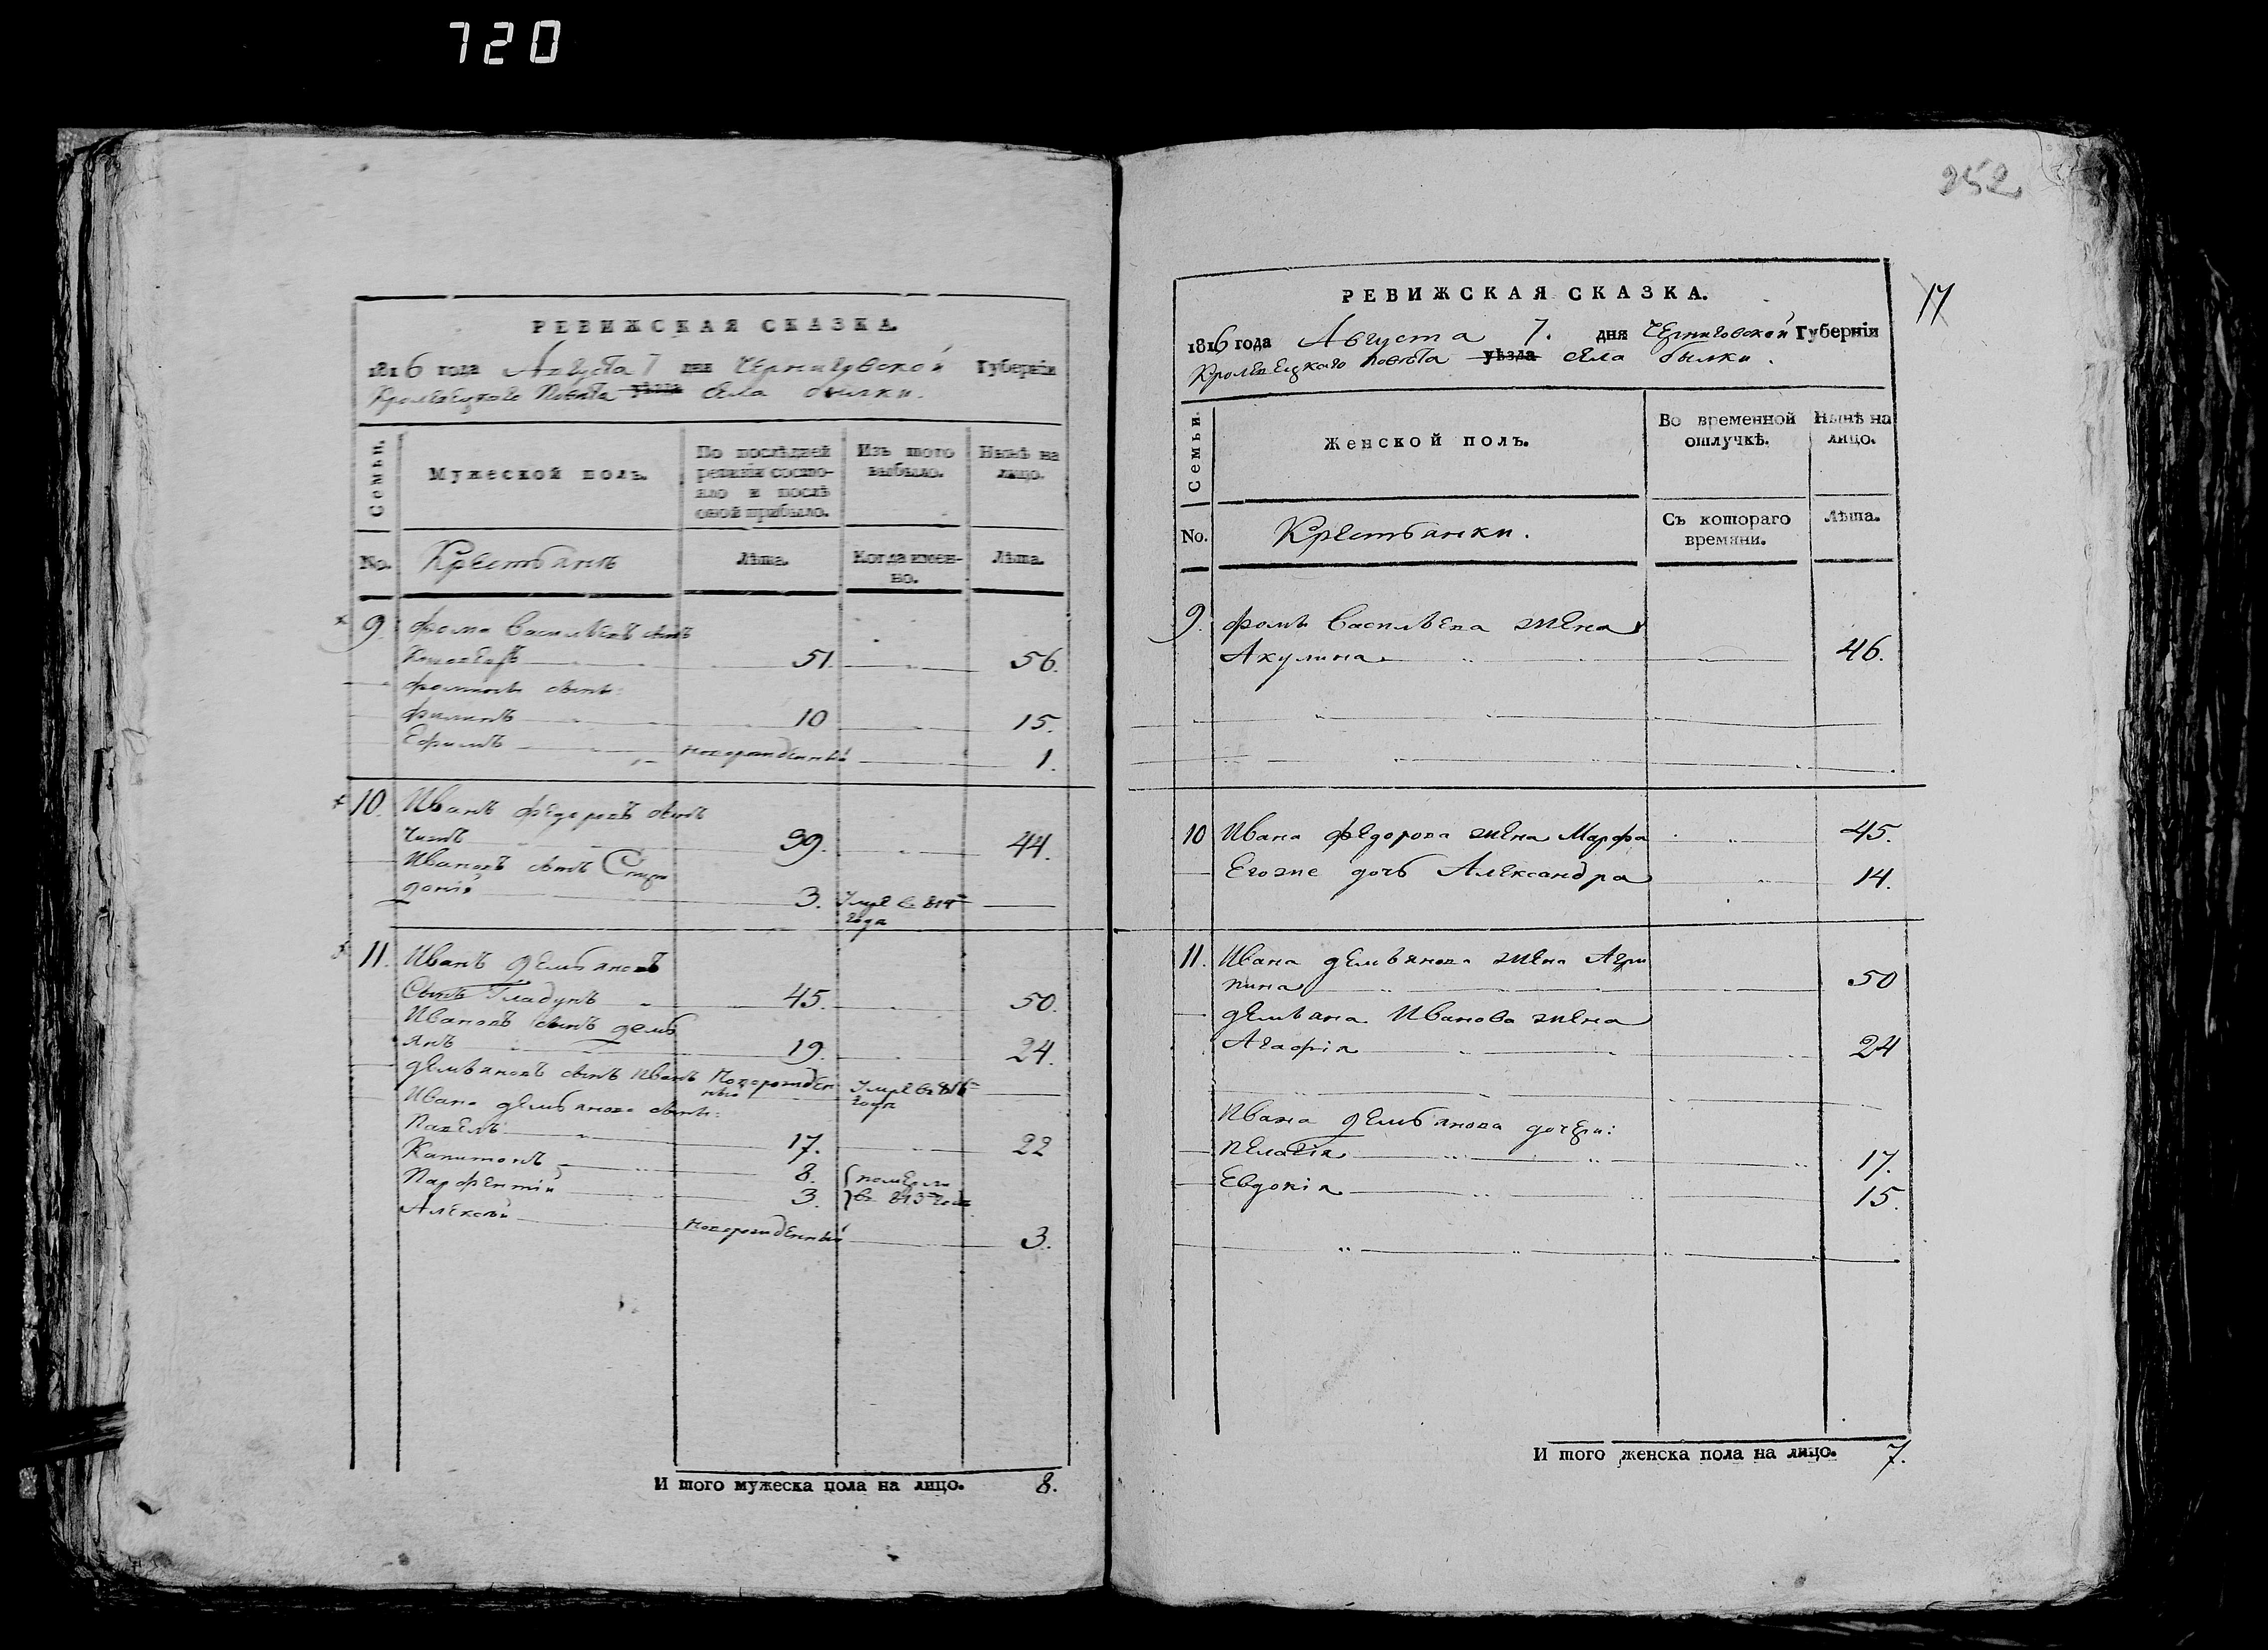 720
РЕВИЖСКАЯ СКАЗКА.
1816 года Августа 7 дня Черниговской Губерніи
Кролевецкого Повѣта уѣзда Села билки.
Семьи.
Мужеской полъ.
По послѣдней ревизіи состояло и послѣ оной прибыло.
Изъ того выбыло.
Нынѣ на лицо.
No.
Крестьянѣ
Лѣта.
Когда именно.
Лѣта.
9. Фома Васильевъ сынъ
51. 56.
Фомины сыны:
Филипъ 10 15.
Ефимъ новорожденный 1.
10. Иванъ Федоровъ сынъ
39. 44.
Ивановъ сынъ Спири
доній 3. Умре в 814
года
11. Иванъ демьяновъ
Сынъ Гладунъ 45. 50.
Ивановъ сынъ демь
янъ 19. 24.
демьяновъ сынъ Иванъ Новорожден
ный Умре въ 816
года
Ивана демьянова сыны:
Павелъ 17. 22
Капитонъ 8. померли
Парфентій 3. в 813 года
Алексѣй новорожденный 3.
И того мужеска пола на лицо. 8.
252
17
РЕВИЖСКАЯ СКАЗКА.
1816 года Августа 7. дня Черниговской Губерніи
Кролевецкаго повѣта уѣзда села билки.
Семьи.
Женской полъ.
Во временной отлучкѣ.
Нынѣ на лицо.
No.
Крестьянки.
Съ котораго времяни.
Лѣта.
9. Фомы Васильева жена
Акулина 46.
10 Ивана Федорова жена Марфа 45.
Его же дочь Александра 14.
11. Ивана демьянова жена Агри
пина 50
демьяна Иванова жена
Агафія 24
Ивана демьянова дочери:
Пелагія 17.
Евдокія 15.
И того женска пола на лицо. 7.